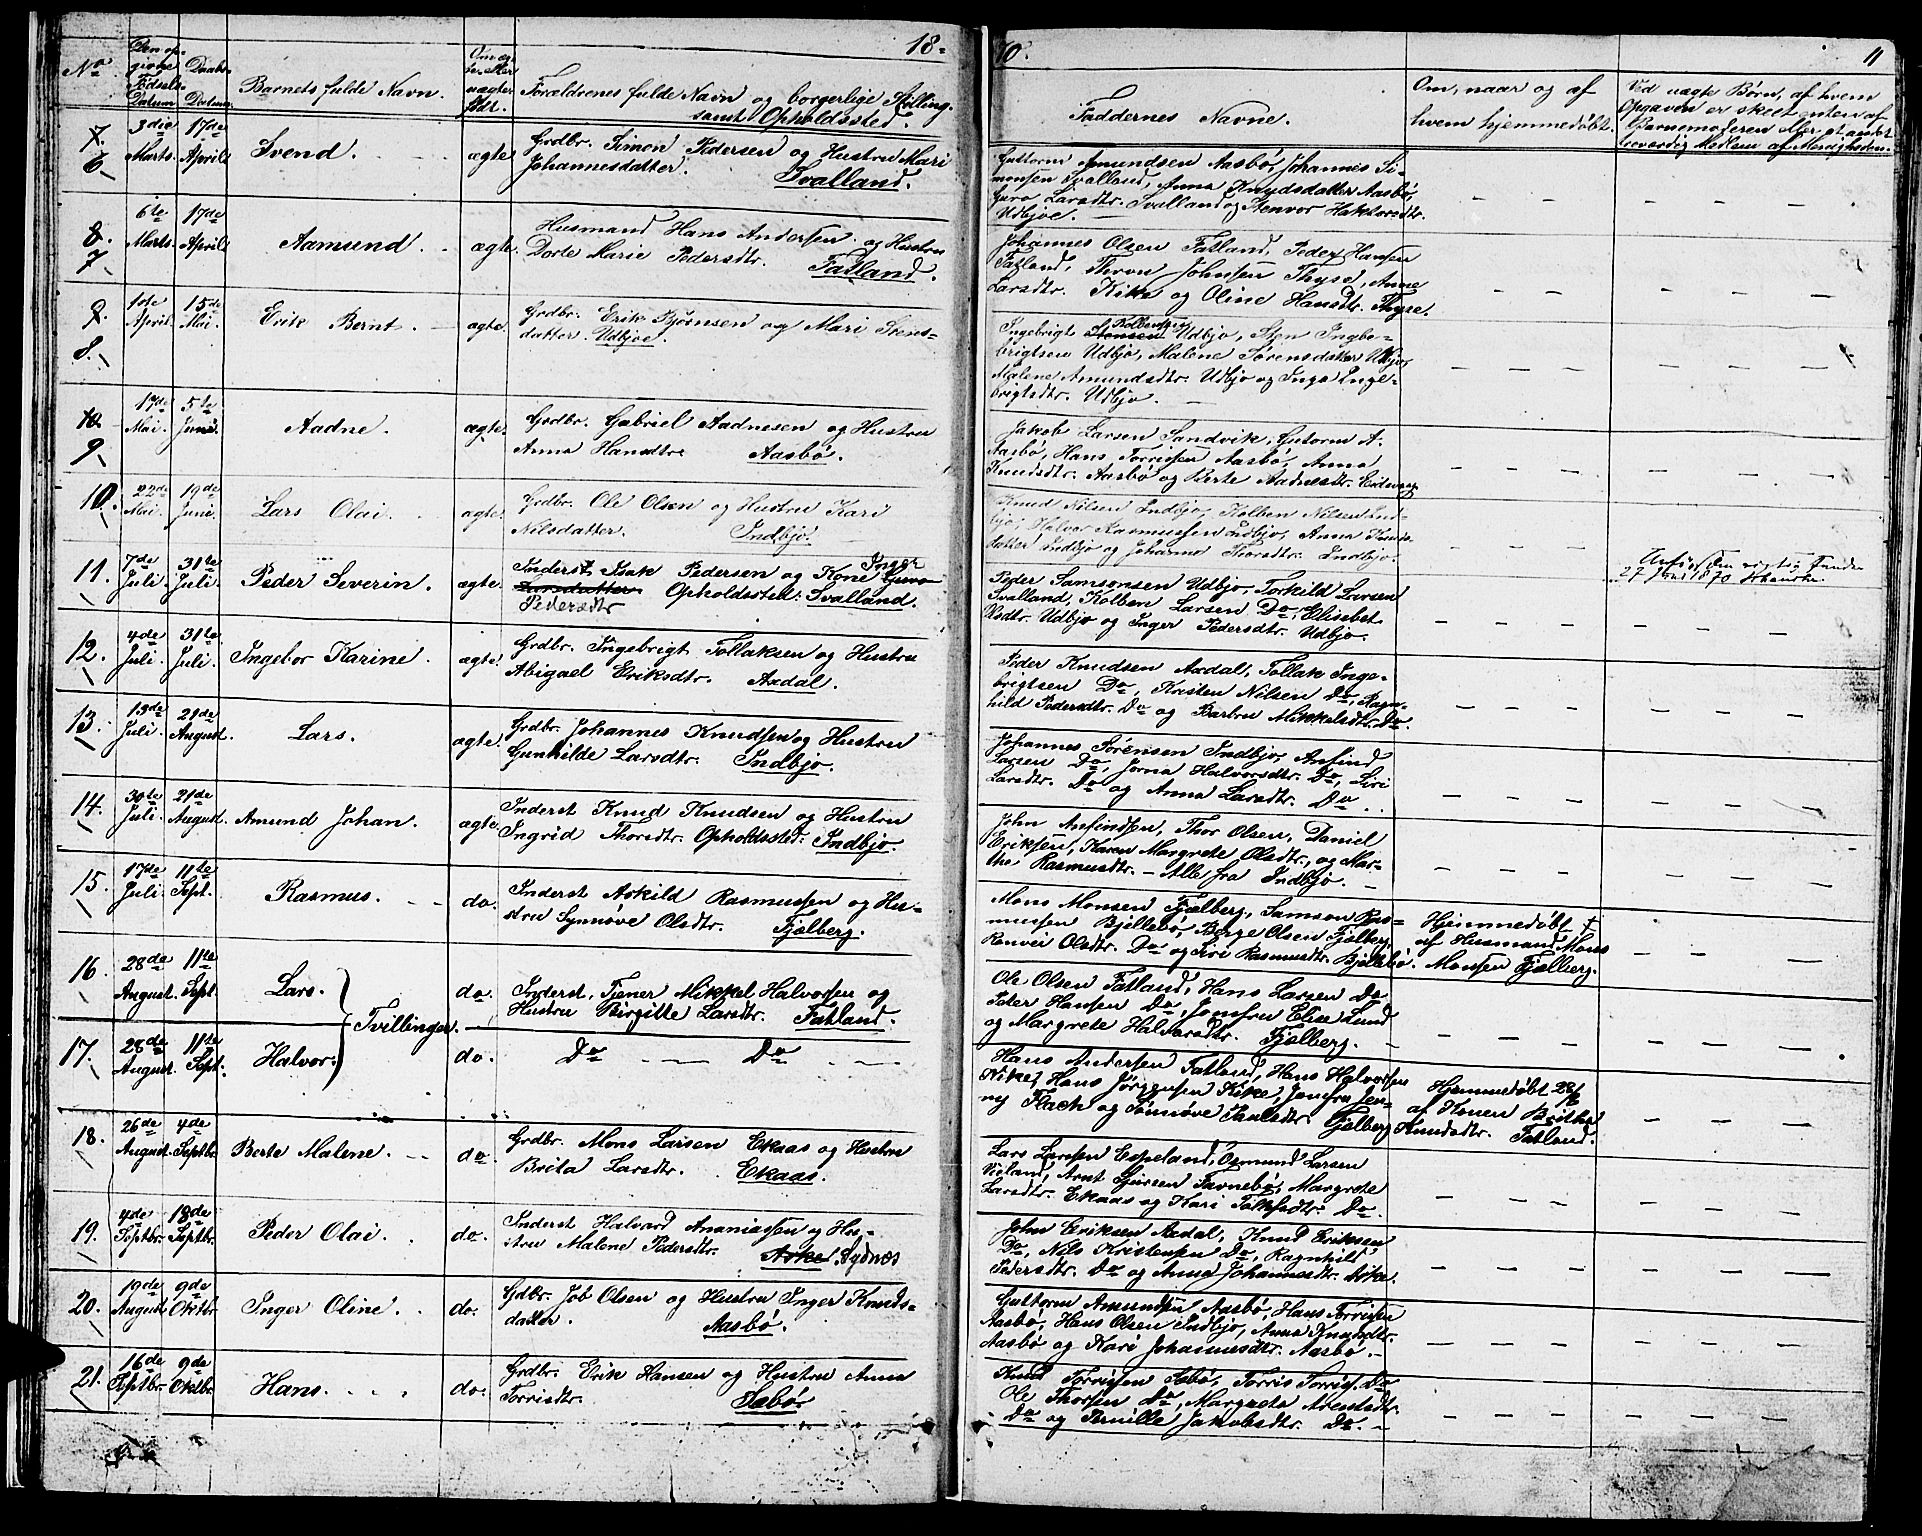 18-
70.
11
No
Den op-
givne
Fødsels-
Datum
Daabs-
Datum
Barnets fulde Navn.
Om æg-
te eller
uægte
født.
Forældrenes fulde Navn og borgerlige Stilling
samt Opholdssted.
Faddernes Navne.
Om, naar og af
hvem hjemmedøbt.
Ved uægte Børn, af hvem
Opgaven er skeet enten af
Barnemoderen eller et andet
troværdig Medlem af Menigheden.
7.
6
3die
Marts.
17de
April
Svend.
ægte
Grdbr. Simon Pedersen og Hustru Mari
Johannesdatter. Svalland.
Guttorm Amundsen Aasbø, Johannes Si-
monsen Svalland, Anna Knudsdatter Aasbø,
Guro Larsdtr. Svalland og Stenvor Haktorsdtr.
Udbjoe.
8.
7
6te
Marts.
17de
April
Aamund
ægte.
Husmand Hans Andersen og Hustru
Dorte Marie Pedersdtr. Fatland.
Johannes Olsen Fatland, Peder Hansen
Fatland, Thron Johnsen Thysø, Anne
Larsdtr. Kike og Oline Hansdtr. Thysø.
9.
8.
1ste
April
15de
Mai.
Erik Bernt.
ægte.
Grdbr. Erik Bjørnsen og Mari Stens-
datter. Udbjoe.
Ingebrigt Jensen Kolbensen Udbjo, Sten Ingbe-
brigtsen Udbjo, Malene Sørensdatter Udbjo,
Malene Amundsdtr. Udbjo og Inga Inge-
brigtsdtr. Udbjo.
10
9.
17de
Mai.
5te
Juni.
Aadne.
ægte.
Grdbr. Gabriel Aadnesen og Hustru
Anna Hansdtr Aasbø.
Jakob Larsen Sandvik, Gutorm A.
Aasbø, Hans Torrisen Aasbø, Anna
Knudsdtr. Aasbø og Berte Aadnesdtr. Eidsvaag
10.
22de
Mai.
19de
Juni.
Lars Olai.
ægte.
Grdbr. Ole Olsen og Hustru Kari
Nilsdatter. Indbjo.
Knud Nilsen Indbjo, Kolben Nilsen Ind-
bjo, Halvor Rasmussen Indbjo, Anna Knuds-
datter Indbjo og Johanna Thorsdtr. Indbjo.
11.
7de
Juli.
31te
Juli.
Peder Severin.
ægte.
Inderst Isak Pedersen og Kone Guro Inger
Larsdatter Opholdssted: Svalland.
Pedersdtr
Peder Samsonsen Udbjo, Torkild Larsen
Svalland, Kolben Larsen Do, Elisabet
Olsdtr. Udbjo og Inger Pedersdtr. Udbjo.
12.
4de
Juli.
31te
Juli.
Ingebor Karine.
ægte.
Grdbr. Ingebrigt Tollaksen og Hustru
Abigael Eriksdtr. Axdal.
Peder Knudsen Axdal, Tollak Inge-
brigtsen Do, Kristen Nilsen Do, Ragn-
hild Pedersdtr. Do og Barbru Mikkelsdtr. Do.
13.
13de
Juli.
21de
August.
Lars.
ægte.
Grdbr. Johannes Knudsen og Hustru
Gunhilde Larsdtr. Indbjo.
Johannes Sørensen Indbjo, Anfind
Larsen Do, Jorna Halvorsdtr. Do, Siri
Larsdtr. Do og Anna Larsdtr. Do.
14.
30te
Juli.
21de
August.
Amund Johan.
ægte.
Inderst Knud Knudsen og Hustru
Ingrid Thorsdtr. Opholdssted: Indbjo.
John Anfindsen, Thor Olsen, Daniel
Eriksen, Karen Margrete Olsdtr., og Mar-
tha Rasmusdtr. – Alle fra Indbjo.
15.
17de
Juli.
11te
Sept.
Rasmus.
do.
Inderst Askild Rasmussen og Hu-
stru Synnøve Olsdtr. Fjelberg.
Mons Monsen Fjelberg, Samson Ras-
mussen Bjellebø, Børge Olsen Fjelberg,
Ranvei Olsdtr. Do og Siri Rasmusdtr. Bjellebø.
Hjemmedøbt †
af Husmand Mons
Monsen Fjelberg.
16.
28de
August.
11te
Sept.
Lars.
Tvillinger.
do.
Inderst, Tjener Mikkel Halvorsen og
Hustru Birgitte Larsdtr. Fatland.
Ole Olsen Fatland, Hans Larsen Do
Peder Hansen Do, Jomfru Elise Lund
og Margrete Halvorsdtr. Fjelberg.
17.
28de
August.
11te
Sept.
Halvor.
do.
Do Do
Hans Andersen Fatland, Hans Halvorsen
Kike, Hans Jørgensen Kike, Jomfru Jen-
ny Flach og Sønnøve Paulsdtr. Fjelberg
Hjemmedøbt 28/8
af Konen Britha
Knudsdtr. Fatland.
18.
26de
August
4de
Septbr.
Berte Malene.
do.
Grdbr. Mons Larsen Ekaas og Hustru
Brita Larsdtr. Ekaas.
Lars Larsen Espeland, Osmund Larsen
Vieland, Arnt Sjursen Favnebø, Margrete
Larsdtr. Ekaas og Kari Falksdtr. Do.
19.
4de
Septbr.
18de
Septbr.
Peder Olai.
do.
Inderst Halvard Ananiassen og Hu-
stru Malene Pedersdtr. Aske Sydnæs
John Eriksen Axdal, Knud Eriksen
Do, Nils Kristensen Do, Ragnhild
Pedersdtr. Do og Anna Johannesdtr. Aske.
20.
19de
August
9de
Oktbr.
Inger Oline.
do.
Grdbr. Job Olsen og Hustru Inger Knuds-
datter. Aasbø.
Guttorm Amundsen Aasbø, Hans Torrisen
Aasbø, Hans Olsen Indbjo, Anna Knudsdtr.
Aasbø og Kari Johannesdtr. Aasbø.
21.
16de
Septbr.
9de
Oktbr.
Hans.
do.
Grdbr. Erik Hansen og Hustru Anna
Torrisdtr. Sæbø
Knud Torrisen Sæbø, Torris Torris. Do
Ole Thorsen Do, Margreta Arnesdtr.
Do og Pernille Jakobsdtr. Do.